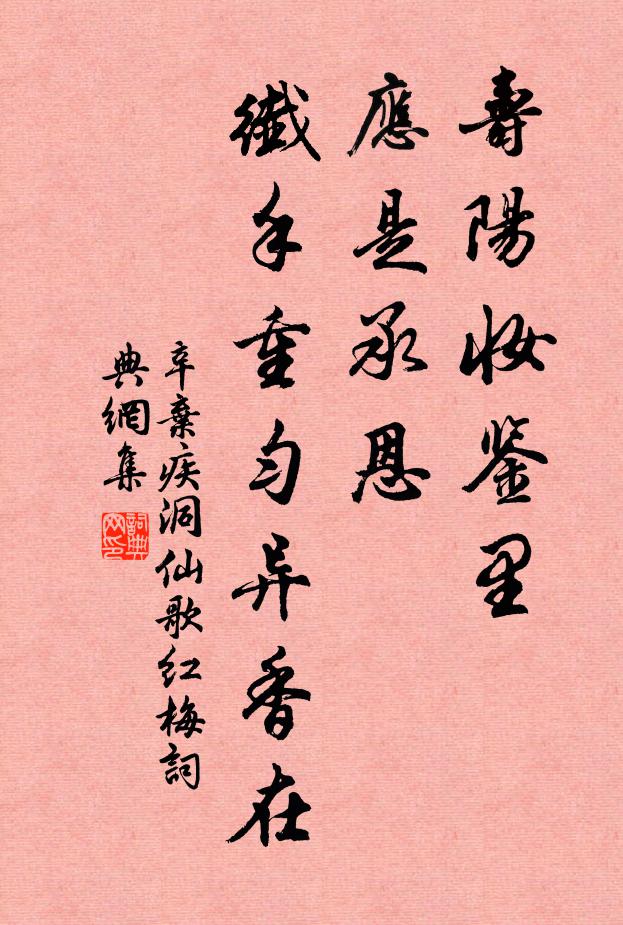 壽陽妝鉴里
應是承恩
纖手重勻异香在
辛棄疾洞仙歌红梅詞
典網集
詞典
网印